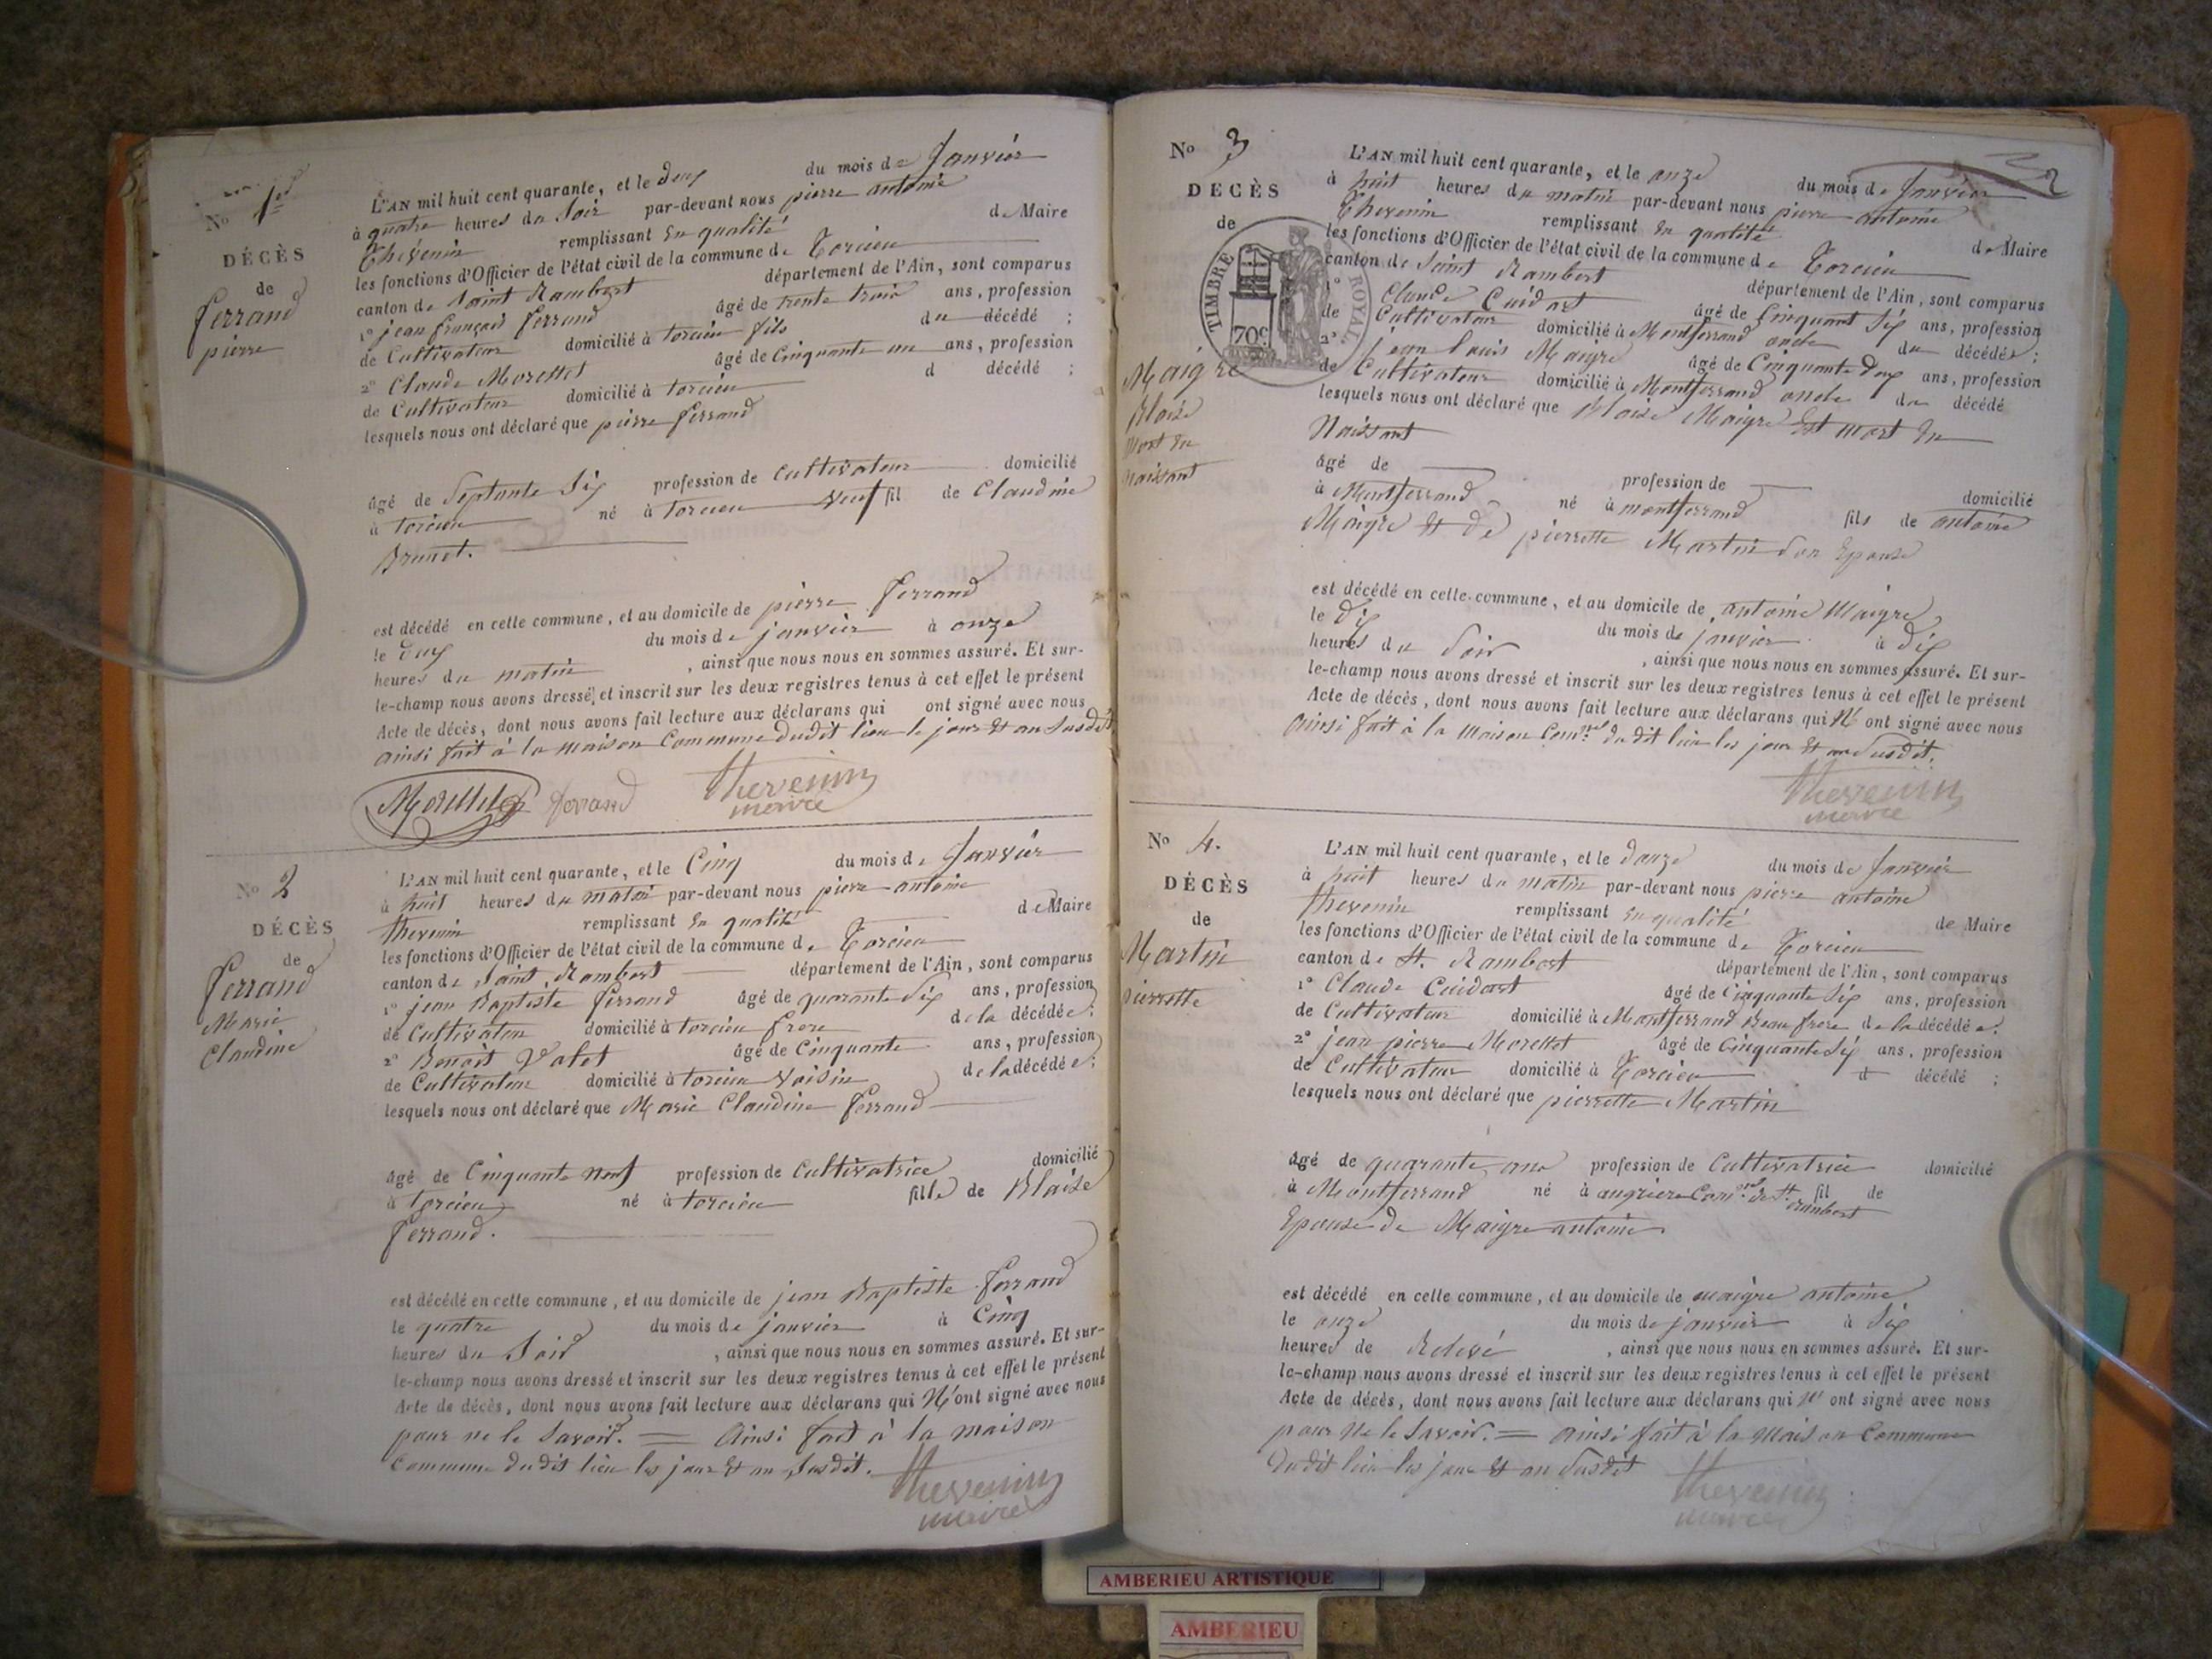 No 1er
DÉCÈS
de
ferrand
pierre
L'AN mil huit cent quarante, et le deux du mois de Janvier
à quatre heures du Soir par-devant nous pierre antoine
Thévenin remplissant en qualité de Maire
les fonctions d'Officier de l'état civil de la commune de Torcieu
canton de Saint Rambert département de l'Ain, sont comparus
1° jean françois ferrand âgé de trente trois ans, profession
de Cultivateur domicilié à torcieu fils du décédé ;
2° Claude Morettet âgé de Cinquante un ans, profession
de Cultivateur domicilié à torcieu d décédé ;
lesquels nous ont déclaré que pierre ferrand
âgé de Septante Six profession de Cultivateur domicilié
à torcieu né à torcieu veuf fil de Claudine
Brunet.
est décédé en celle commune, et au domicile de pierre ferrand
le deux du mois de janvier à onze
heures du matin , ainsi que nous nous en sommes assuré. Et sur-
le-champ nous avons dressé et inscrit sur les deux registres tenus à cet effet le présent
Acte de décès, dont nous avons fait lecture aux déclarans qui ont signé avec nous
ainsi fait à la maison Commune dudit lieu le jour et an susdit
Morettet ferrand thevenin
maire
No 2
DÉCÈS
de
ferrand
Marie
Claudine
L'AN mil huit cent quarante, et le Cinq du mois de Janvier
à huit heures du matin par-devant nous pierre antoine
thevenin remplissant en qualité de Maire
les fonctions d'Officier de l'état civil de la commune de Torcieu
canton de Saint Rambert département de l'Ain, sont comparus
1° jean Baptiste ferrand âgé de quarante Six ans, profession
de Cultivateur domicilié à torcieu frere de la décédée ;
2° Benoit Valet âgé de Cinquante ans, profession
de Cultivateur domicilié à torcieu Voisin de la décédée ;
lesquels nous ont déclaré que Marie Claudine ferrand
âgé de Cinquante neuf profession de Cultivatrice domicilié
à torcieu né à torcieu fille de Blaise
ferrand.
est décédé en cette commune, et au domicile de jean Baptiste ferrand
le quatre du mois de janvier à Cinq
heures du Soir , ainsi que nous nous en sommes assuré. Et sur-
le-champ nous avons dressé et inscrit sur les deux registres tenus à cet effet le présent
Acte de décès, dont nous avons fait lecture aux déclarans qui N'ont signé avec nous
pour ne le Savoir. = Ainsi fait à la maison
Commune dudit lieu les jour et an susdit.
thevenin
maire
2
No 3
DECÈS
de
TIMBRE ROYAL
70c
Maigre
Blaise
mort en
naissant
L'AN mil huit cent quarante, et le onze du mois de Janvier
à huit heures du matin par-devant nous pierre antoine
Thevenin remplissant en qualité de Maire
les fonctions d'Officier de l'état civil de la commune de Torcieu
canton de Saint Rambert département de l'Ain, sont comparus
1° Claude Cuidart âgé de Cinquant Six ans, profession
de Cultivateur domicilié à Montferrand oncle du décédé ;
2° jean louis Maigre âgé de Cinquante deux ans, profession
de Cultivateur domicilié à Montferrand oncle du décédé
lesquels nous ont déclaré que Blaise Maigre Est mort En
Naissant
âgé de profession de domicilié
à Montferrand né à montferrand fils de antoine
Maigre et de pierrette Martin son Epouse
est décédé en celle commune, et au domicile de antoine Maigre
le dix du mois de janvier à dix
heures du Soir , ainsi que nous nous en sommes assuré. Et sur-
le-champ nous avons dressé et inscrit sur les deux registres tenus à cet effet le présent
Acte de décès, dont nous avons fait lecture aux déclarans qui N' ont signé avec nous
ainsi fait à la Maison Comne dudit lieu les jour et an susdit.
thevenin
maire
No 4.
DÉCÈS
de
Martin
pierrette
L'AN mil huit cent quarante, et le douze du mois de Janvier
à huit heures du matin par-devant nous pierre antoine
thevenin remplissant en qualité de Maire
les fonctions d'Officier de l'état civil de la commune de Torcieu
canton de St. Rambert département de l'Ain, sont comparus
1° Claude Cuidart âgé de Cinquante Six ans, profession
de Cultivateur domicilié à Montferrand Beau frere de la décédée.
2° jean pierre Morettet âgé de Cinquante Six ans, profession
de Cultivateur domicilié à Torcieu d décédé ;
lesquels nous ont déclaré que pierrette Martin
âgé de quarante ans profession de Cultivatrice domicilié
à Montferrand né à angrieres Comne de St. Rambert fil de
Epouse de Maigre antoine
est décédé en celle commune, et au domicile de maigre antoine
le onze du mois de janvier à Six
heures de Relevé , ainsi que nous nous en sommes assuré. Et sur-
le-champ nous avons dressé et inscrit sur les deux registres tenus à cet effet le présent
Acte de décès, dont nous avons fait lecture aux déclarans qui N' ont signé avec nous
pour Ne le Savoir. = ainsi fait à la Maison Commune
dudit lieu les jour et an susdit
thevenin
maire
AMBERIEU ARTISTIQUE
AMBERIEU